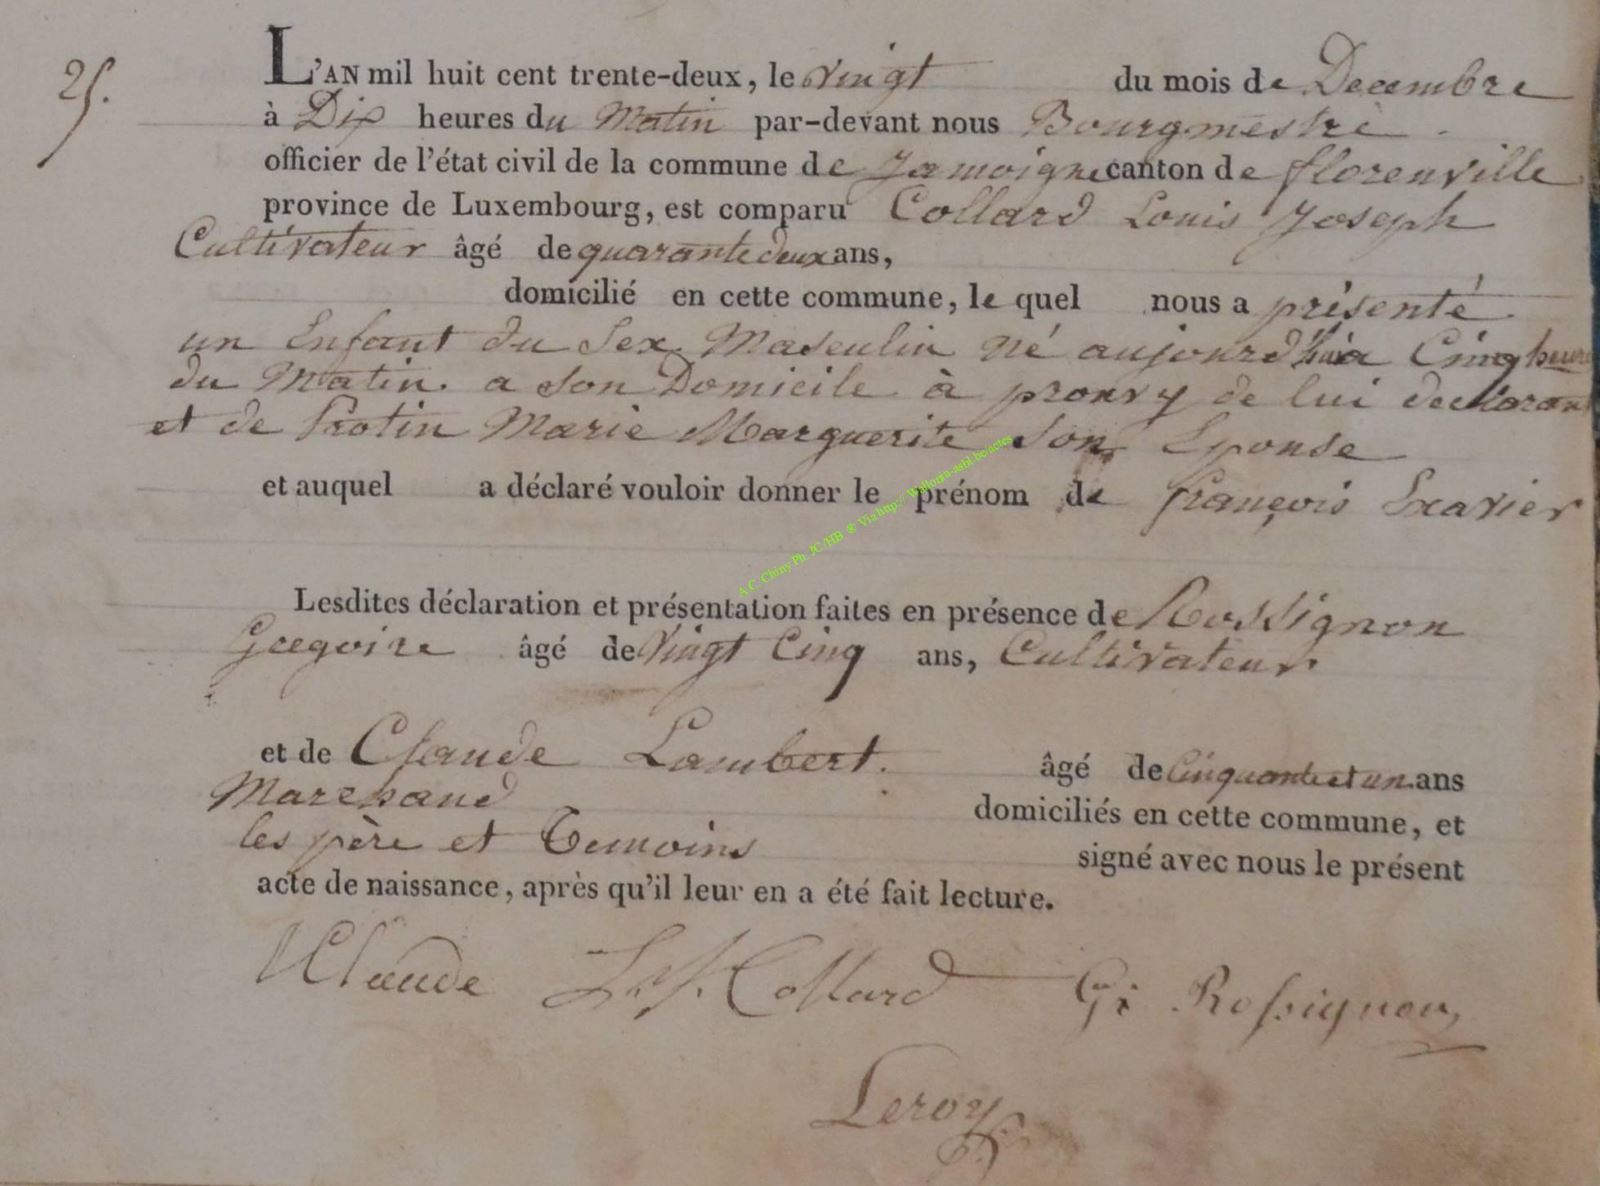 25.
L'AN mil huit cent trente-deux, le vingt du mois de Decembre
à Dix heures du Matin par-devant nous Bourgmestre
officier de l'état civil de la commune de Jamoigne canton de florenville
province de Luxembourg, est comparu Collard Louis Joseph
Cultivateur âgé de quarante deux ans,
domicilié en cette commune, le quel nous a présenté
un Enfant du Sex Masculin né aujourd'hui a Cinq heure
du Matin a son Domicile à prouvy de lui declarant
et de Protin Marie Marguerite son Epouse
et auquel a déclaré vouloir donner le prénom de françois Exavier
Lesdites déclaration et présentation faites en présence de Rossignon
Gregoire âgé de vingt Cinq ans, Cultivateur
et de Claude Lambert. âgé de Cinquante et un ans
Marchand domiciliés en cette commune, et
les père et Temoins signé avec nous le présent
acte de naissance, après qu'il leur en a été fait lecture.
Claude L. J. Collard G. Rossignon
Leroy
A.C. Chiny Ph JC/HB ® Via http:// Wallonia-asbl.be/actes